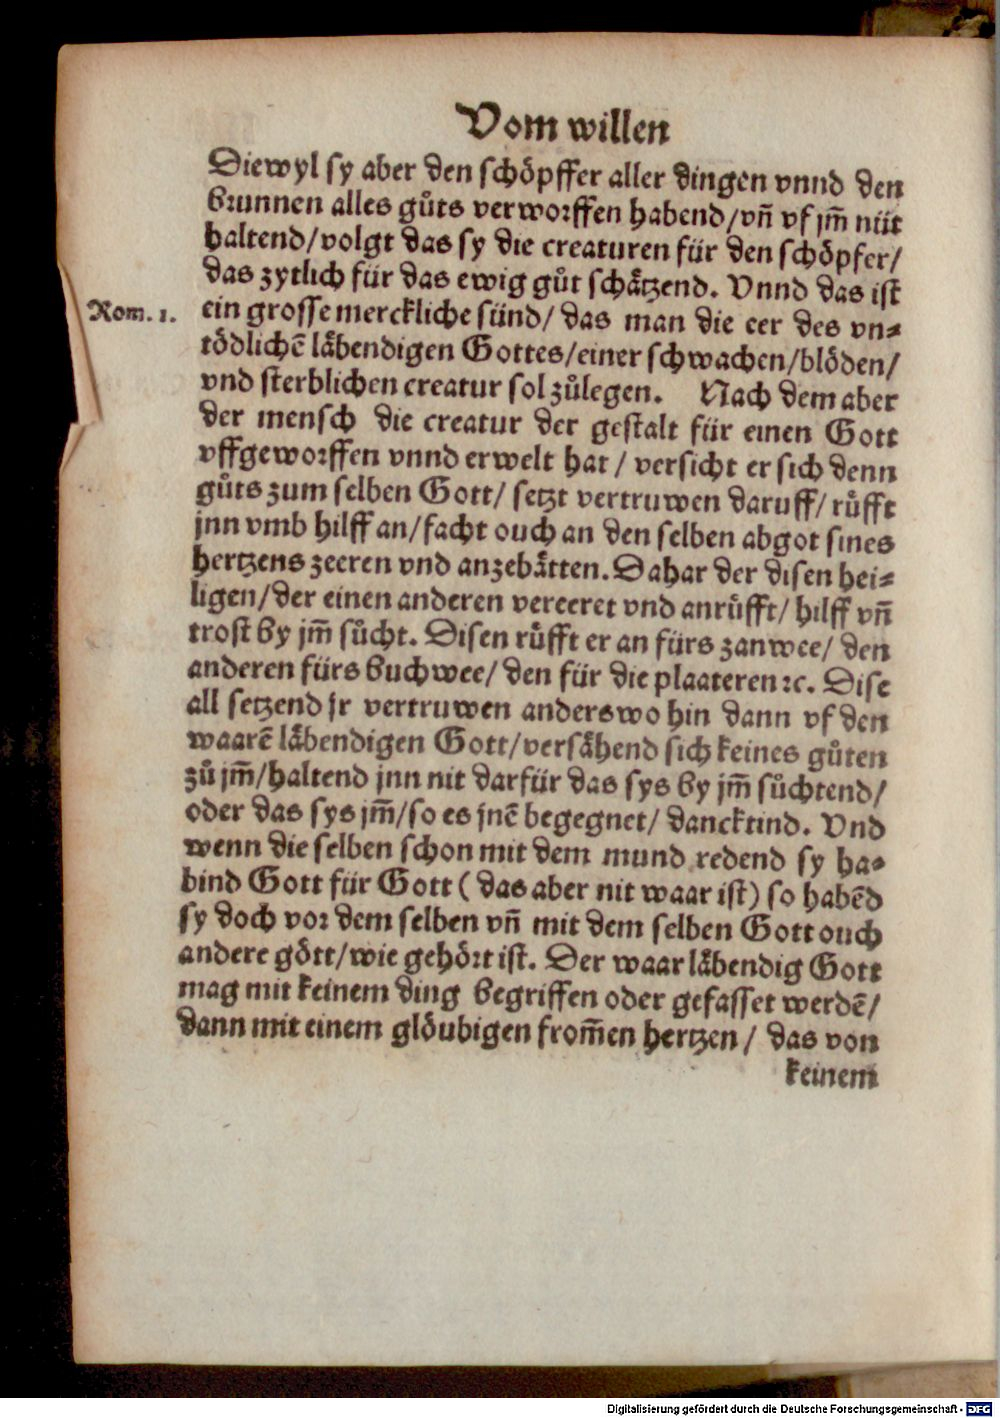 Vom willen
Diewyl sy aber den schöpffer aller dingen vnnd den
brunnen alles gůts verworffen habend/vñ vf jm̃ nüt
haltend/volgt das sy die creaturen für den schöpfer/
das zytlich für das ewig gůt schätzend. Vnnd das ist
Rom. 1.
ein grosse merckliche sünd/ das man die eer des vn⸗
tödlichẽ läbendigen Gottes/einer schwachen/blöden/
vnd sterblichen creatur sol zůlegen. Nach dem aber
der mensch die creatur der gestalt für einen Gott
vffgeworffen vnnd erwelt hat / versicht er sich denn
gůts zum selben Gott/ setzt vertruwen daruff/ rüfft
jnn vmb hilff an/facht ouch an den selben abgot sines
hertzens zeeren vnd anzebätten. Dahar der disen hei⸗
ligen/der einen anderen vereeret vnd anrüfft/ hilff vñ
trost by jm̃ sůcht. Disen rüfft er an fürs zanwee/ den
anderen fürs buchwee/ den für die plaateren ꝛc. Dise
all setzend jr vertruwen anderswo hin dann vf den
waarẽ läbendigen Gott/versähend sich keines gůten
zů jm̃/haltend jnn nit darfür das sys by jm̃ sůchtend/
oder das sys jm̃/so es jnẽ begegnet/ dancktind. Vnd
wenn die selben schon mit dem mund redend sy ha⸗
bind Gott für Gott ( das aber nit waar ist) so habẽd
sy doch vor dem selben vñ mit dem selben Gott ouch
andere gött/wie gehört ist. Der waar läbendig Gott
mag mit keinem ding begriffen oder gefasset werdẽ/
dann mit einem glöubigen from̃en hertzen / das von
keinem
Digitalisierung gefördert durch die Deutsche Forschungsgemeinschaft - DFG